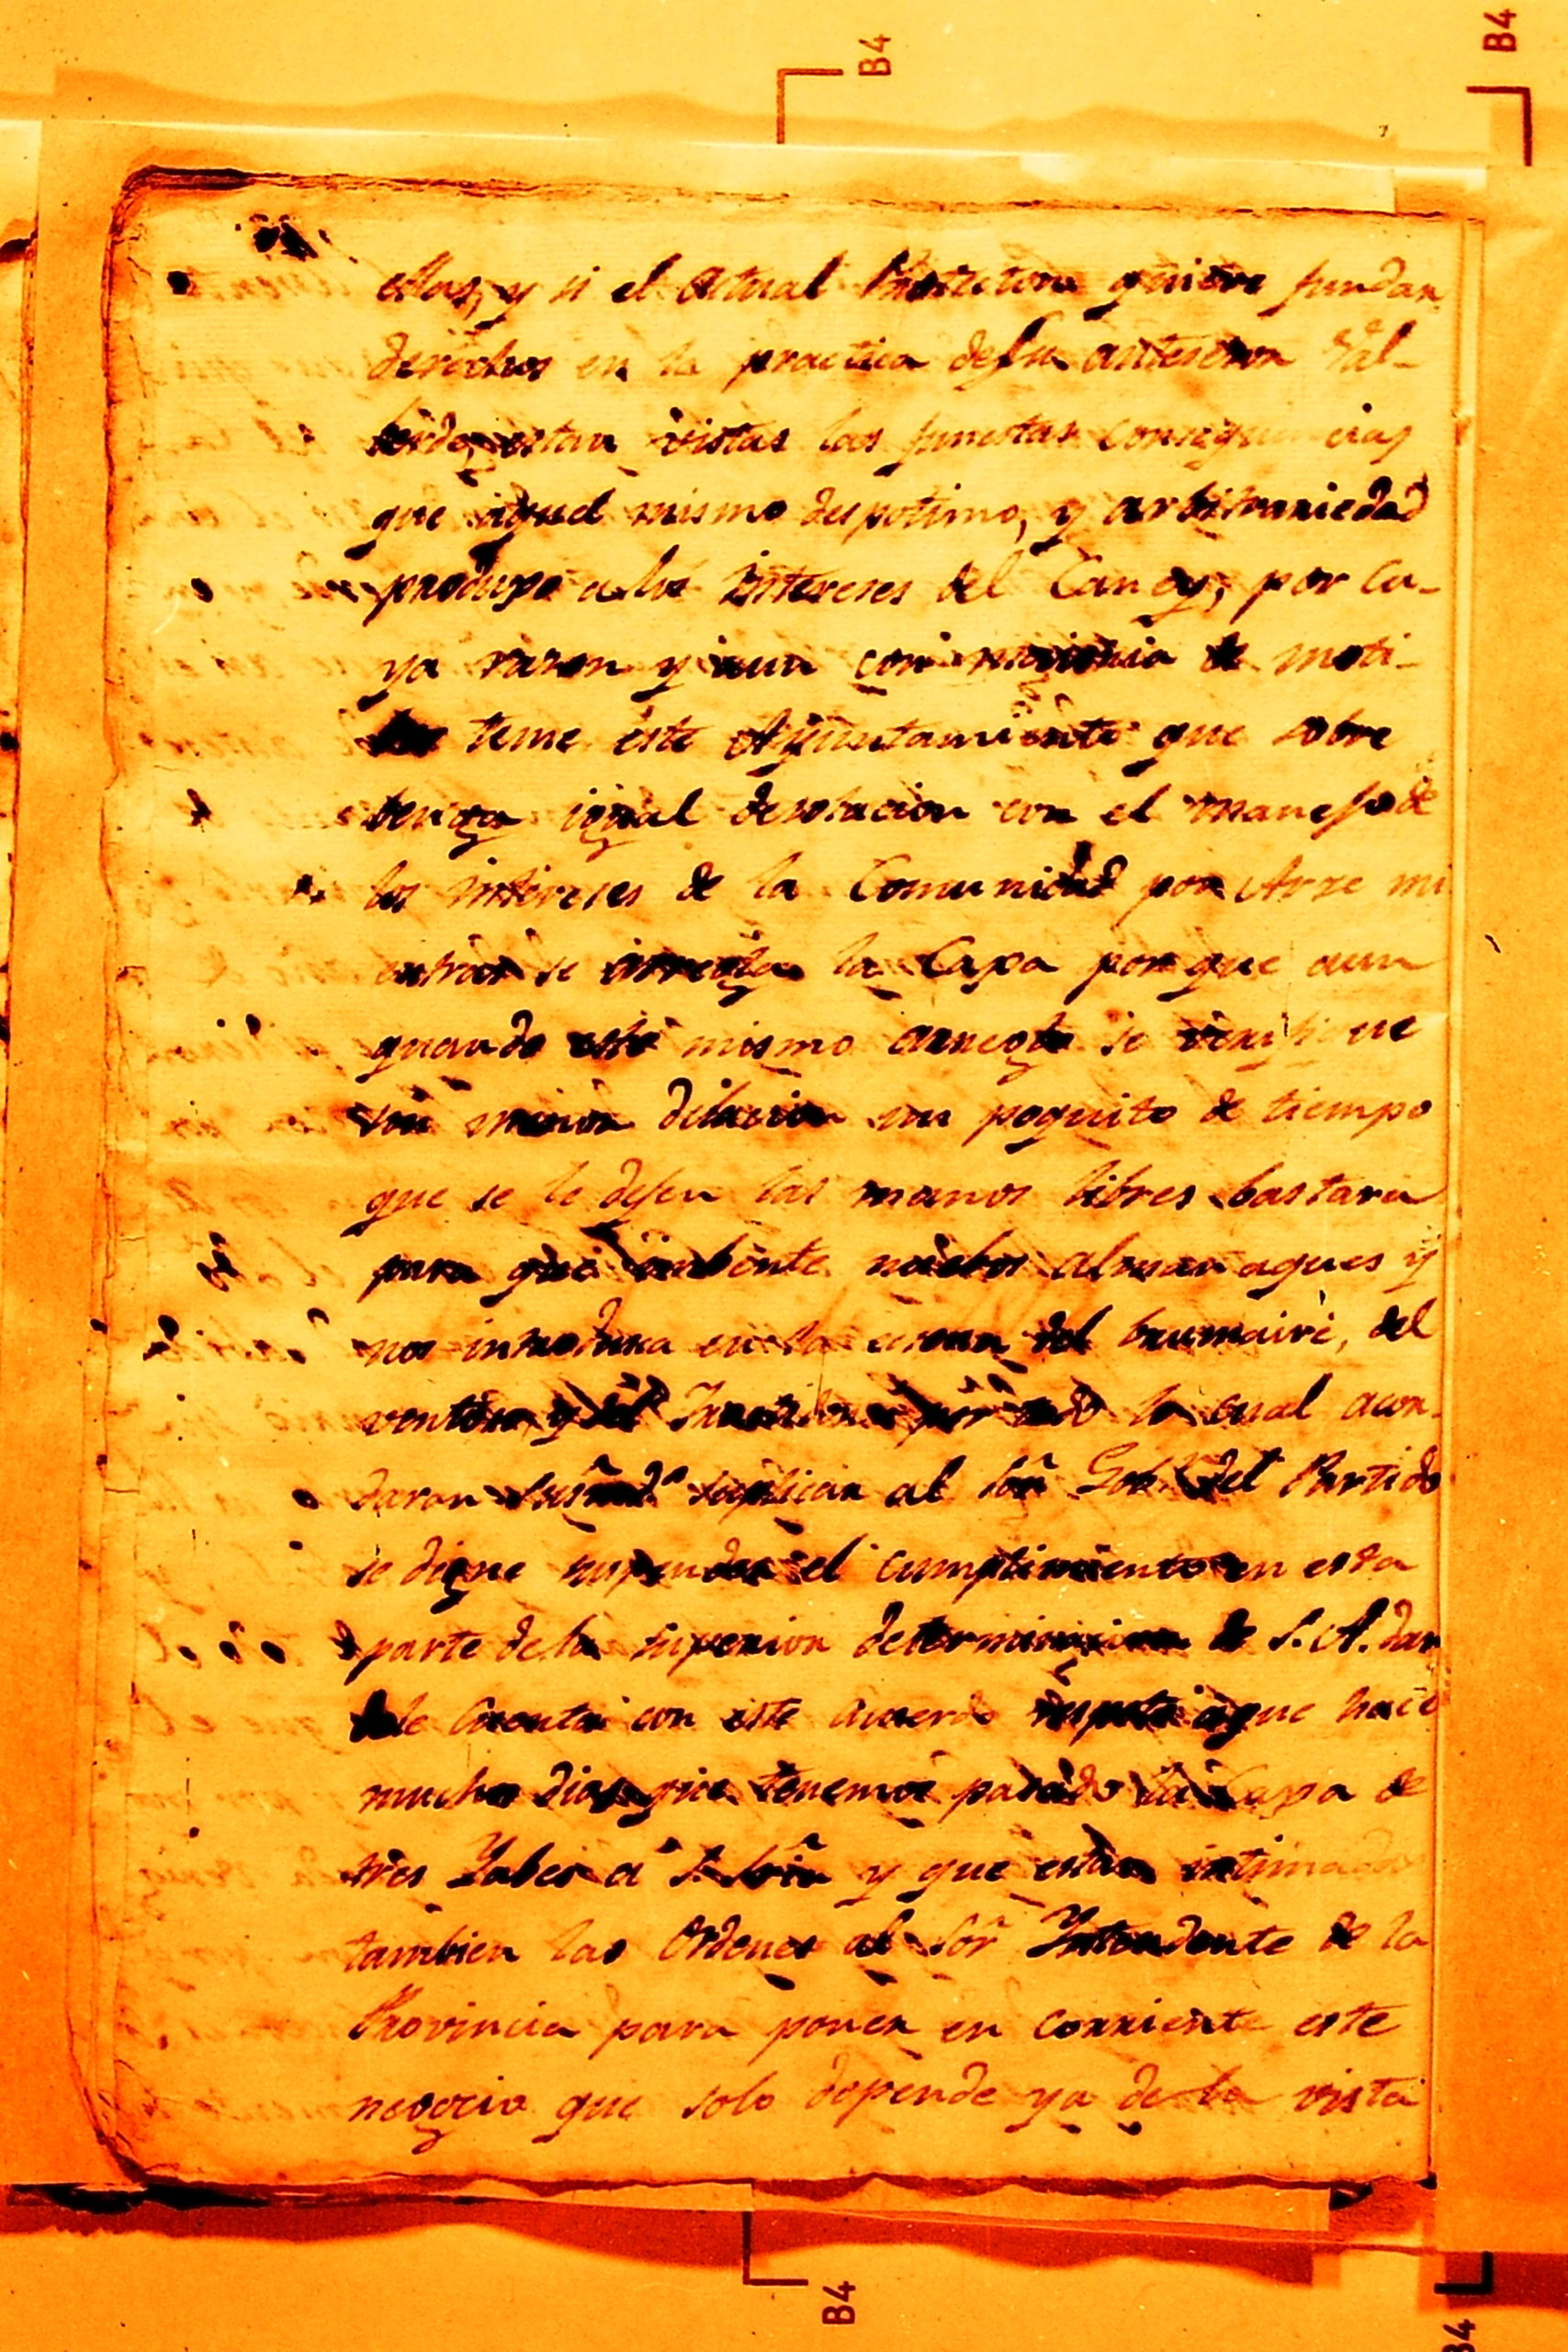 B4
B4
ellas, y si el actual Protector quiere fundar
derechos en la practica de su antesesor Val-
berde, estan vistas las funestas consequencias
que aquel mismo despotimo, y arbitrariedad
produxo a los Intereses del Caney, por cu-
ya razon y aun con de moti-
teme este Ayuntamiento que sobre
benga igual desolacion con el manejo de
los intereses de la Comunidad por Arze mi
entras se arregla la Caxa por que aun
quando este mismo arreglo se verifique
sin menor dilacion un poquito de tiempo
que se le dejen las manos libres bastara
para que imbente nuebos almanaques y
nos introdusca en la del brumaire, del
ventoso y del por todo lo cual acor-
daron suplicar al Sõr Gobr del Partido
se digne suspender el cumplimiento en esta
parte de la superior determinacion de S. A. dan
dole Cuenta con este acuerdo respeto aque hace
muchos dias que tenemos pasado la Caxa de
tres Yabes a y que estan intimadas
tambien las Ordenes al Sõr Yntendente de la
Provincia para poner en corriente este
negocio que solo depende ya de la vista
B4
B4